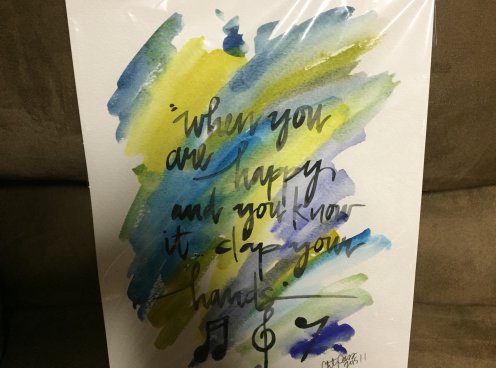 "when you
are happy
and you know
it.. clap your
hands."